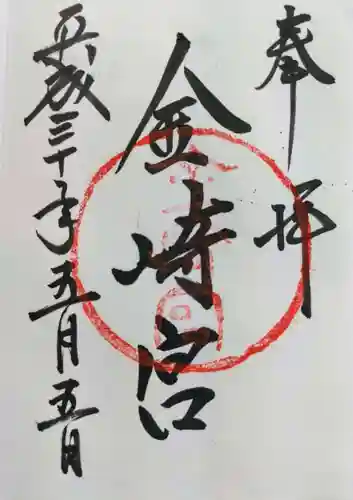 奉拝
金崎宮
平成三十年五月五日